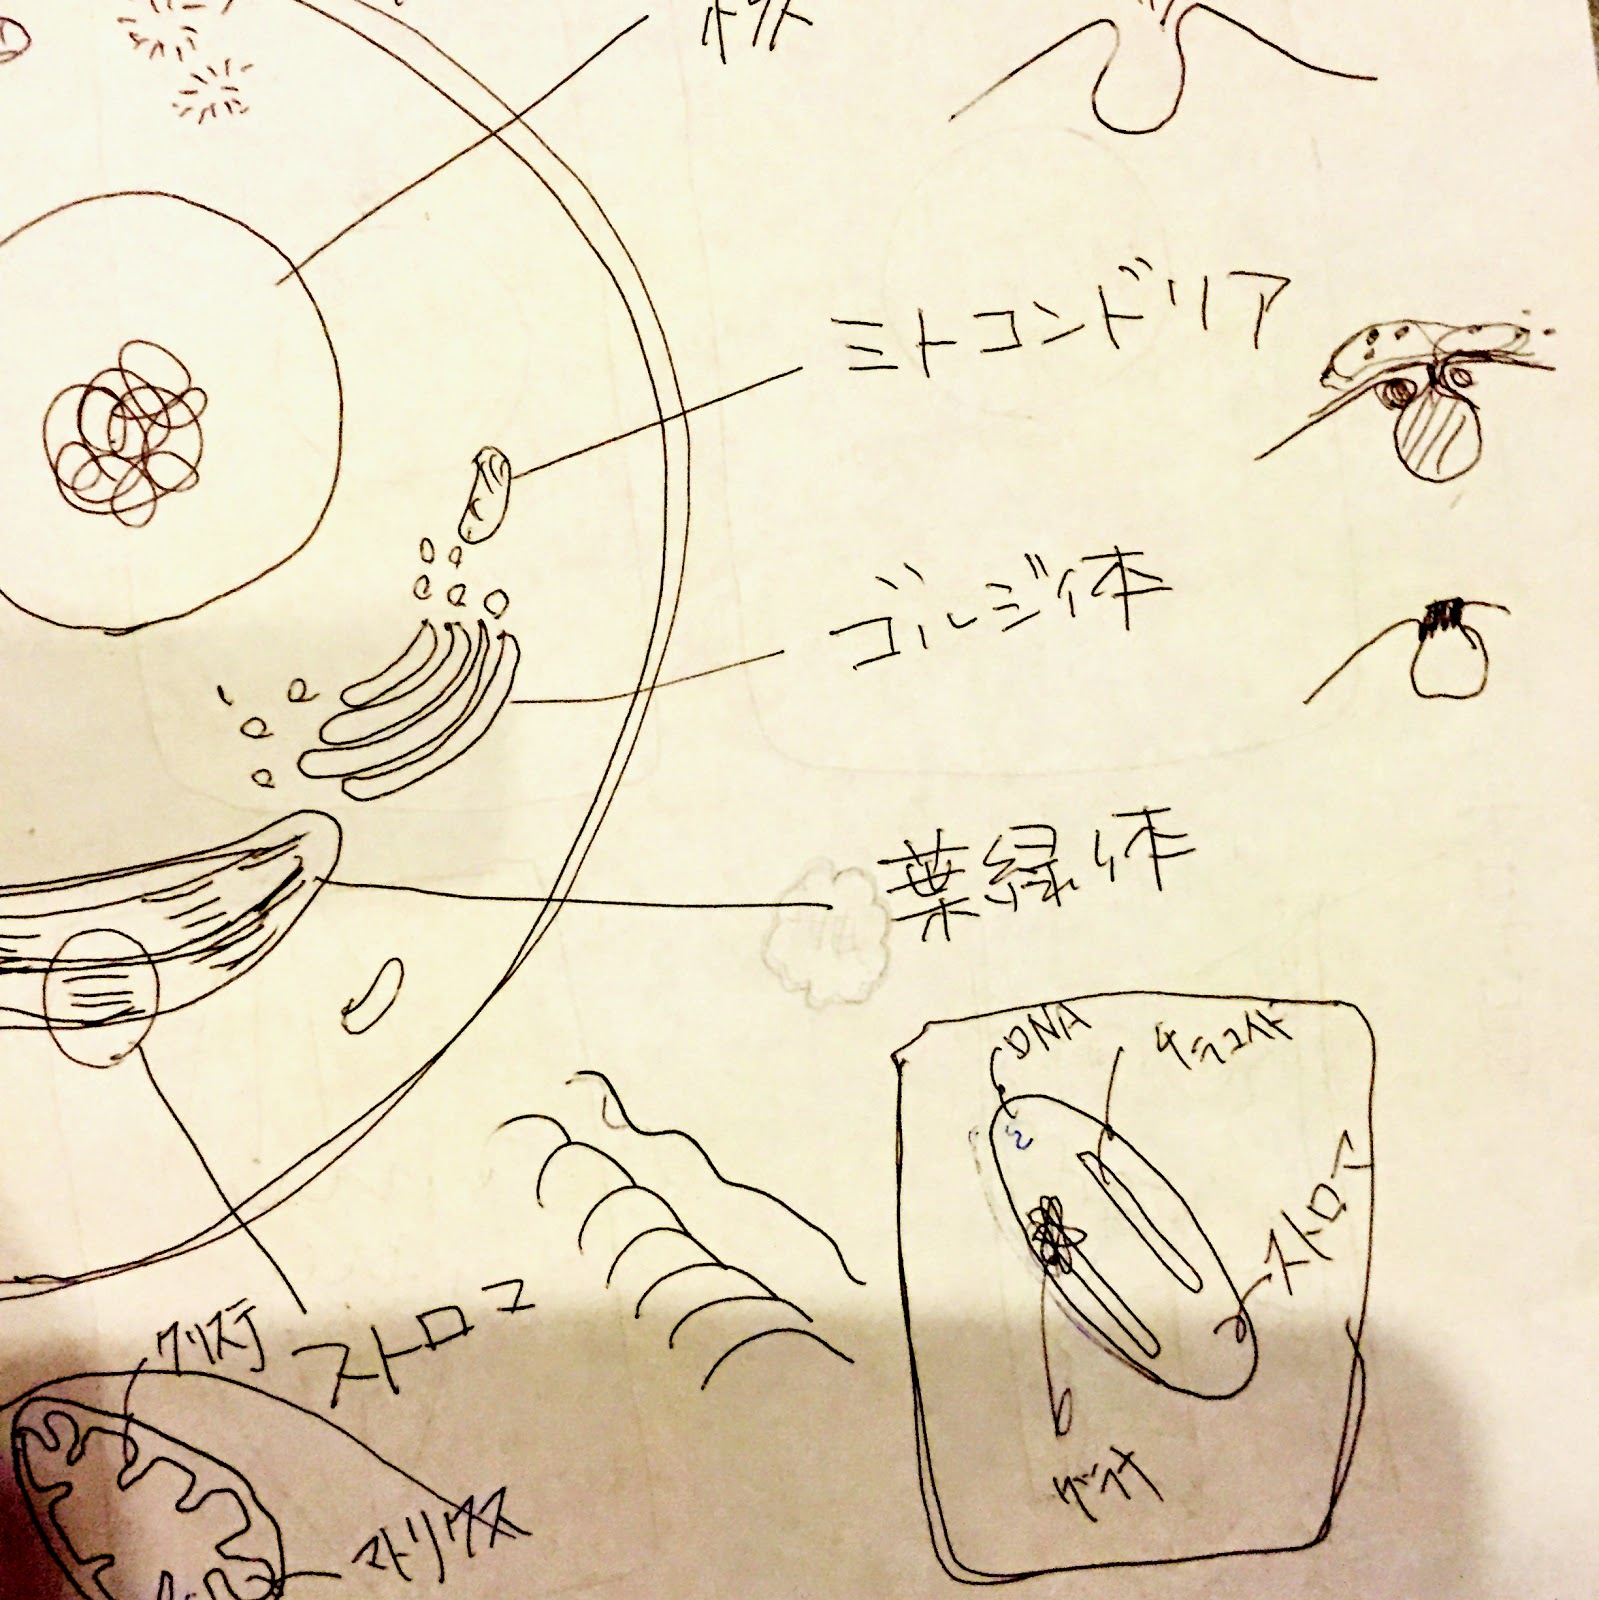 ミトコンドリア
ゴルジ体
葉緑体
DNA
チラコイド
ストロマ
クリステ
ストロマ
グラナ
マトリクス